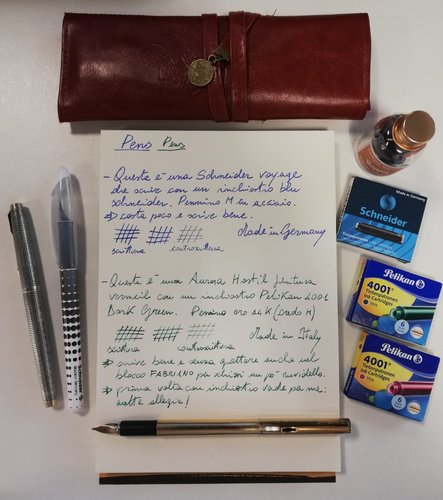 Pens Pens
- Questa è una Schneider voyage
che scrive con un inchiostro blu
schneider. Pennino M in acciaio.
costa poco e scrive bene.
scrittura
controscrittura
Made in Germany
- Questa è una Aurora Hastil finitura
vermeil con un inchiostro Pelikan 4001
Dark Green. Pennino oro 14K (credo M)
scrittura
controscrittura
Made in Italy
scrive bene e senza grattare anche nel
blocco FABRIANO per schizzi un po' ruvidello.
prima volta con inchiostro verde per me:
mette allegria!
Made in Germany
Schneider
Pelikan
4001®
Tintenpatronen
Ink Cartridges
6
Pelikan
4001®
Tintenpatronen
Ink Cartridges
6
Schneider